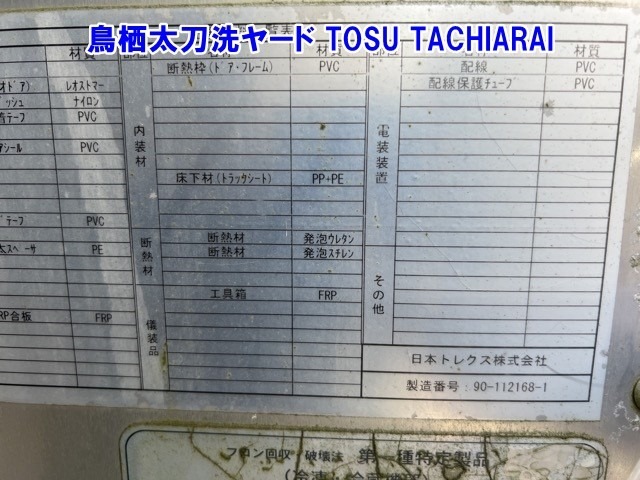 鳥栖太刀洗ヤード TOSU TACHIARAI
材質 部位 材質 部位 名称 材質
断熱枠(ドア・フレーム) PVC 配線 PVC
レオストマー 配線保護チューブ PVC
ナイロン
テープ PVC
内装材 電装装置
シール PVC
床下材(トラッタシート) PP+PE
テープ PVC
断熱材 発泡ウレタン
スペーサ PE 断熱材 断熱材 発泡スチレン
その他
工具箱 FRP
RP合板 FRP
儀装品
日本トレクス株式会社
製造番号:90-112168-1
フロン回収・破壊法 第一種特定製品